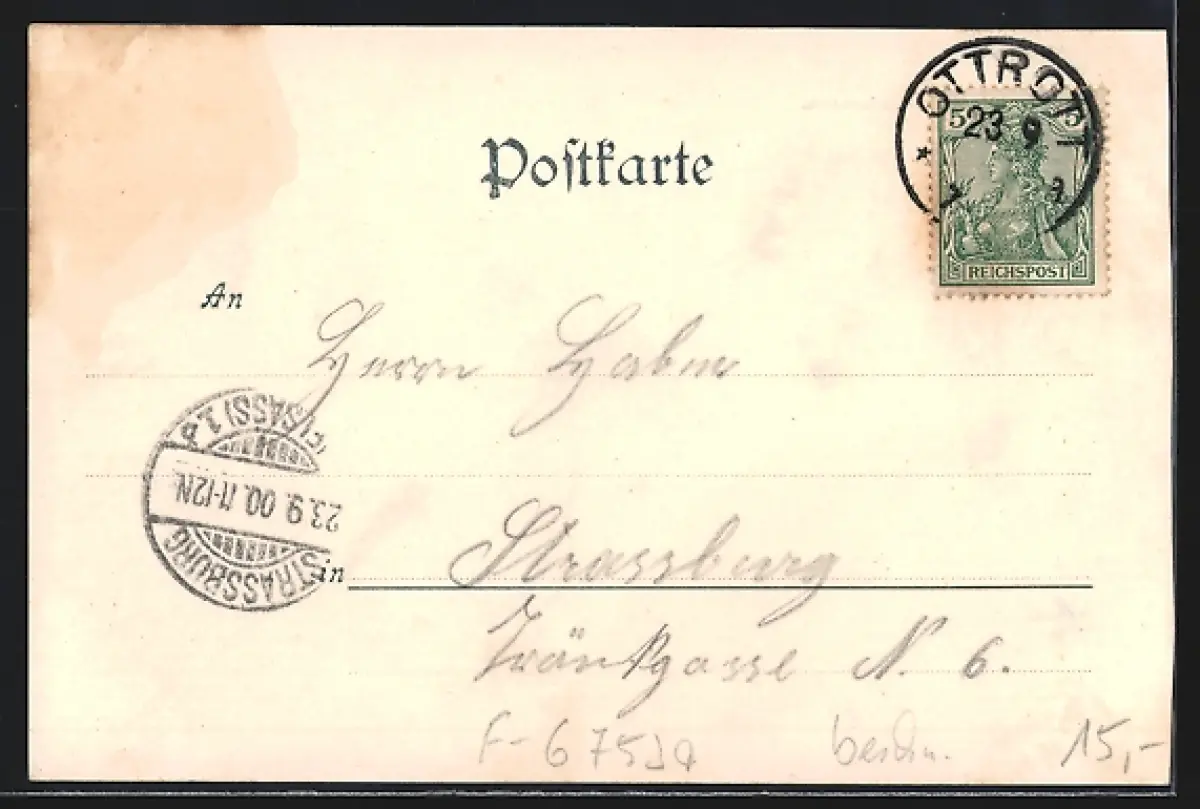 Postkarte
OTTROTT
23 9
5 5
REICHSPOST
An
Herrn Haber
STRASSBURG
23.9.00.11-12N.
(ELSASS) 1.d
in Strassburg
Tränkgasse N. 6.
F-6752a
beschr.
15,-